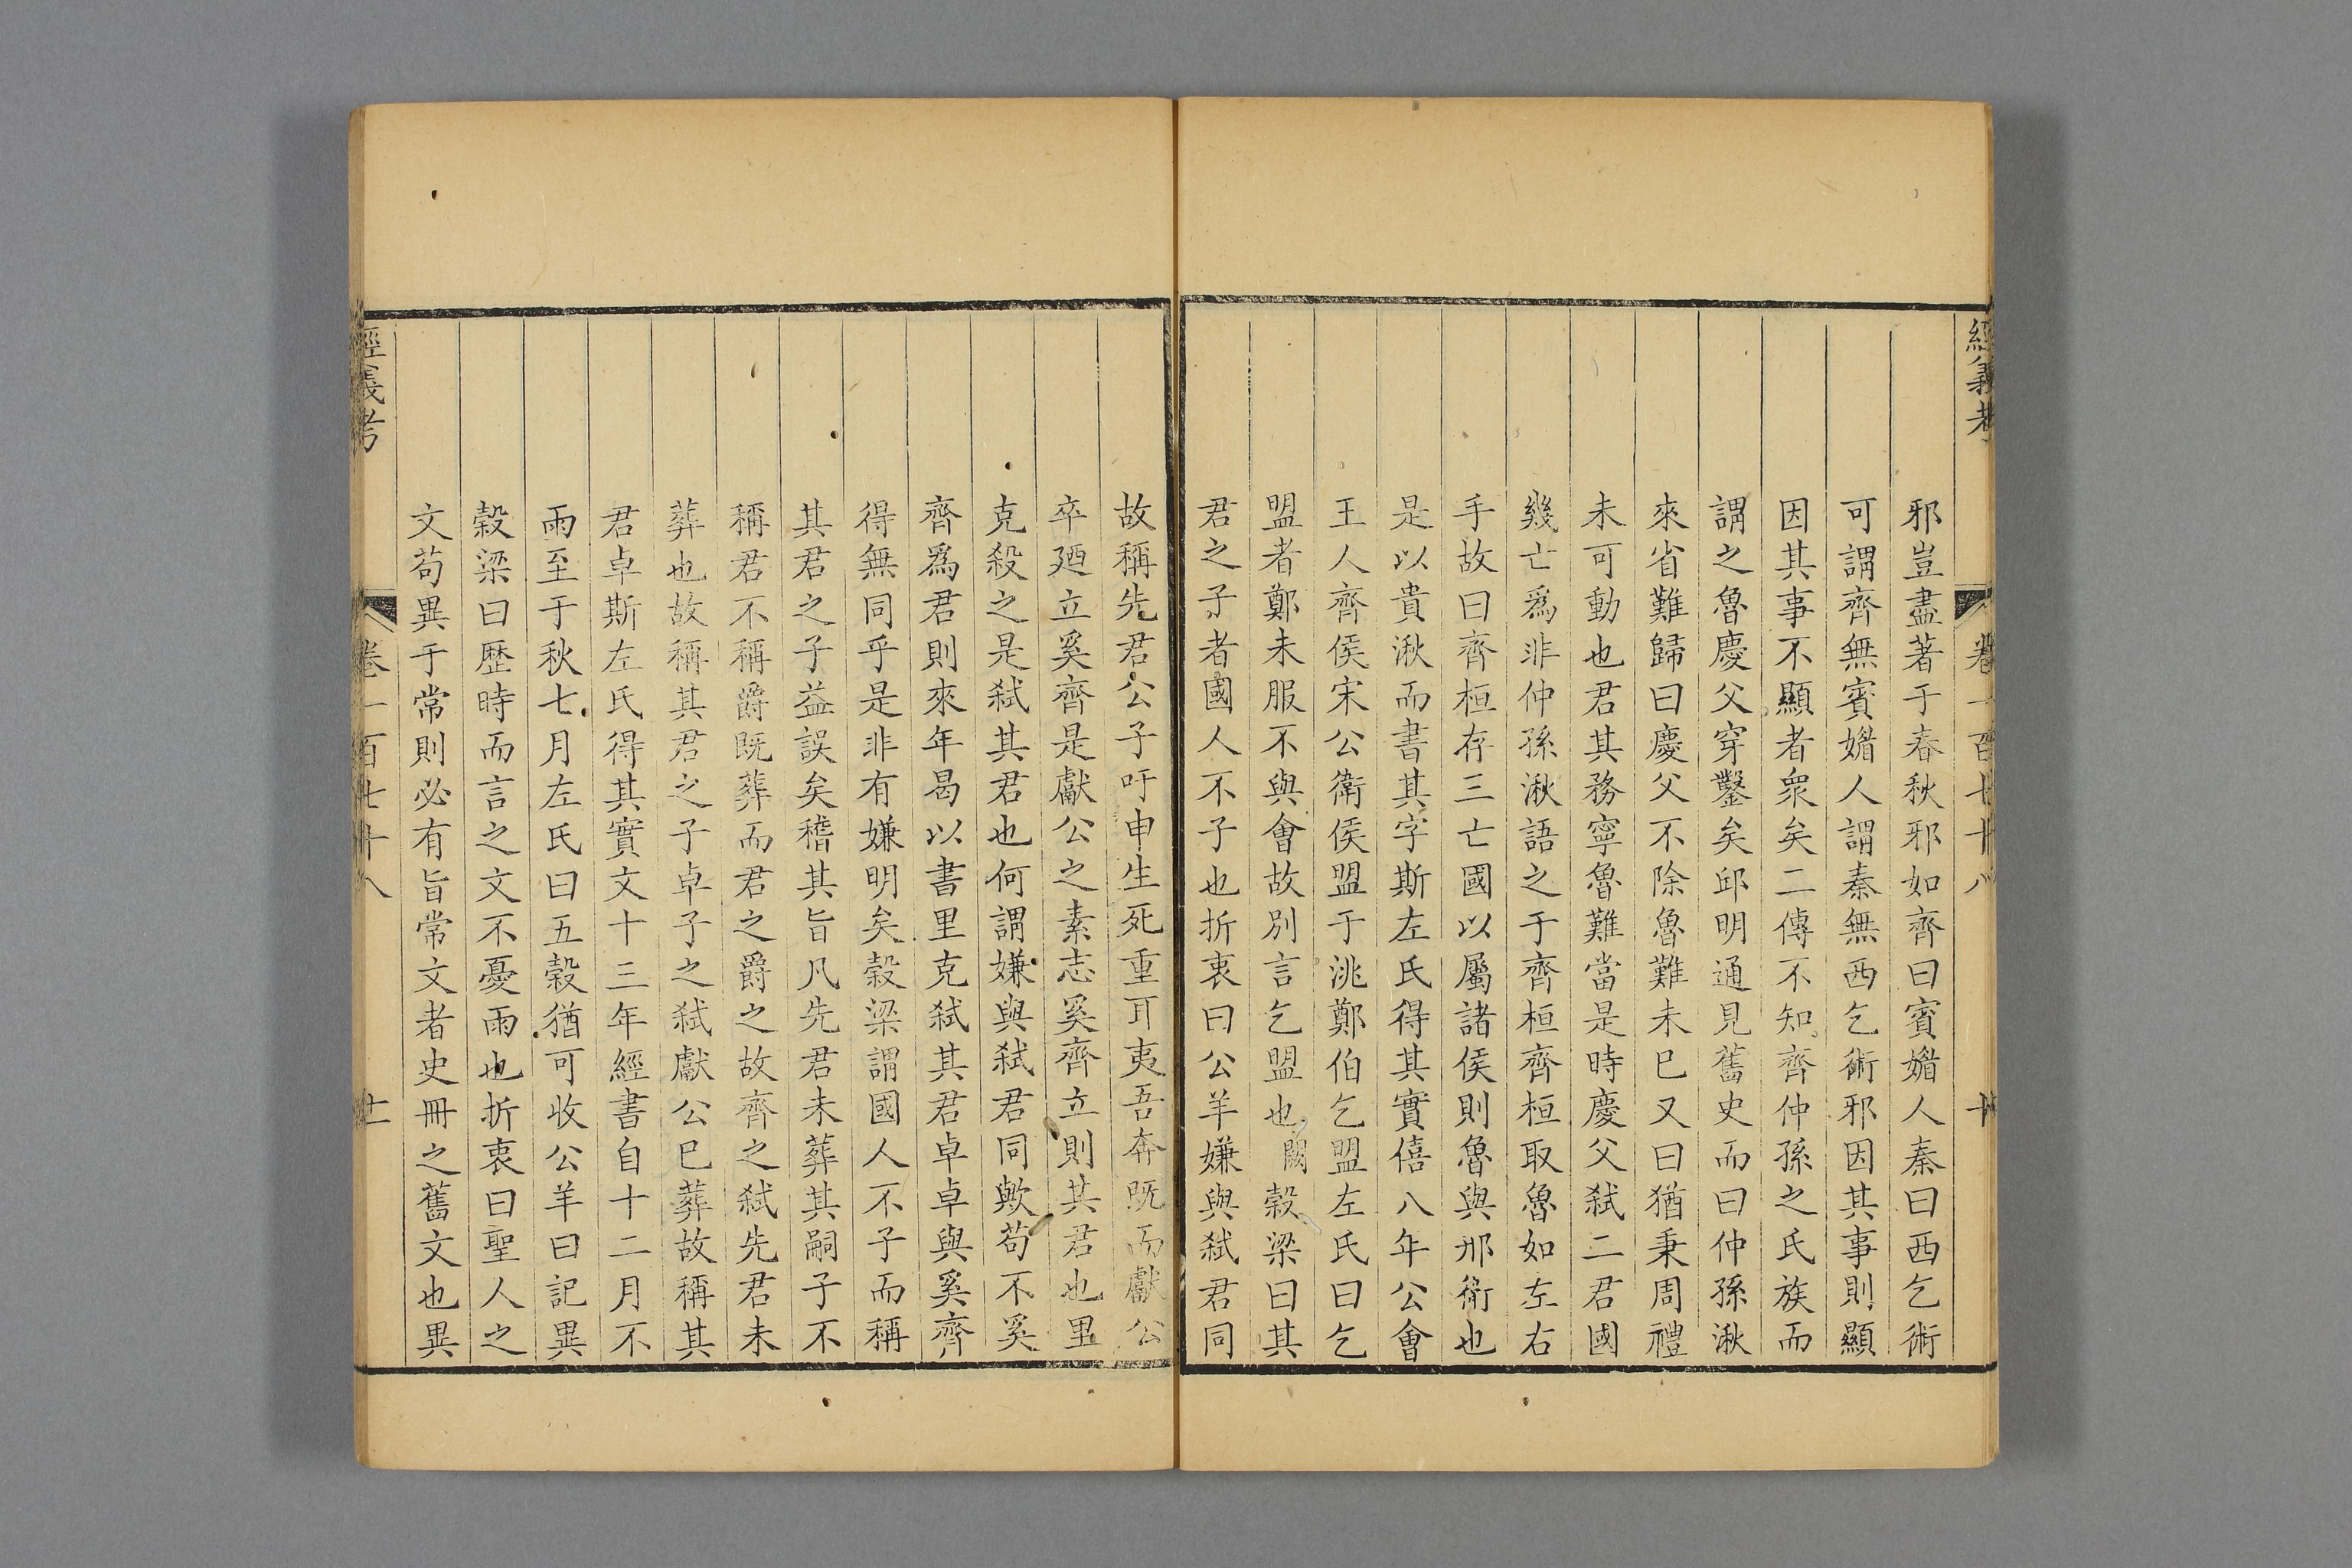 經義考 卷一百七十八 十
邪豈盡著于春秋邪如齊曰賓媚人秦曰西乞術
可謂齊無賓媚人謂秦無西乞術邪因其事則顯
因其事不顯者衆矣二傳不知齊仲孫之氏族而
謂之魯慶父穿鑿矣邱明通見舊史而曰仲孫湫
來省難歸曰慶父不除魯難未巳又曰猶秉周禮
未可動也君其務寧魯難當是時慶父弑二君國
幾亡爲非仲孫湫語之于齊桓齊桓取魯如左右
手故曰齊桓存三亡國以屬諸侯則魯與邢衛也
是以貴湫而書其字斯左氏得其實僖八年公會
王人齊侯宋公衛侯盟于洮鄭伯乞盟左氏曰乞
盟者鄭未服不與會故别言乞盟也闕穀梁曰其
君之子者國人不子也折衷曰公羊嫌與弑君同
故稱先君公子吁申生死重耳夷吾奔既而獻公
卒廼立奚齊是獻公之素志奚齊立則其君也里
克殺之是弑其君也何謂嫌與弑君同歟苟不奚
齊爲君則來年曷以書里克弑其君卓卓與奚齊
得無同乎是非有嫌明矣穀梁謂國人不子而稱
其君之子益誤矣稽其旨凡先君未葬其嗣子不
稱君不稱爵既葬而君之爵之故齊之弑先君未
葬也故稱其君之子卓子之弑獻公巳葬故稱其
君卓斯左氏得其實文十三年經書自十二月不
雨至于秋七月左氏曰五穀猶可收公羊曰記異
穀梁曰歷時而言之文不憂雨也折衷曰聖人之
文苟異于常則必有旨常文者史冊之舊文也異
經義考 卷一百七十八 十一